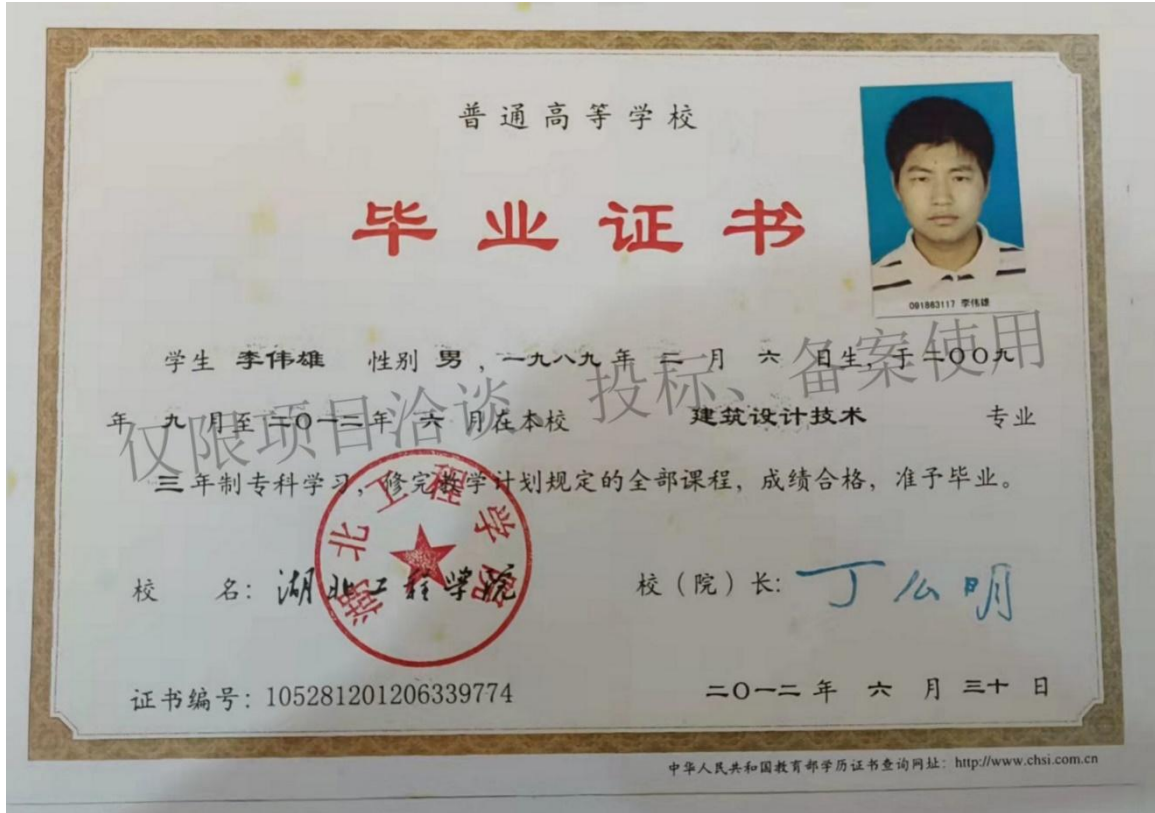 普通高等学校
毕业证书
091863117 李伟雄
学生 李伟雄 性别 男，一九八九年 二 月 六 日生，于二〇〇九
年 九 月至二〇一二年 六 月在本校 建筑设计技术 专业
三年制专科学习，修完教学计划规定的全部课程，成绩合格，准予毕业。
仅限项目洽谈、投标、备案使用
湖北工程学院
校 名：湖北工程学院
校（院）长：丁么明
证书编号：105281201206339774
二〇一二年 六 月 三十 日
中华人民共和国教育部学历证书查询网址：http://www.chsi.com.cn